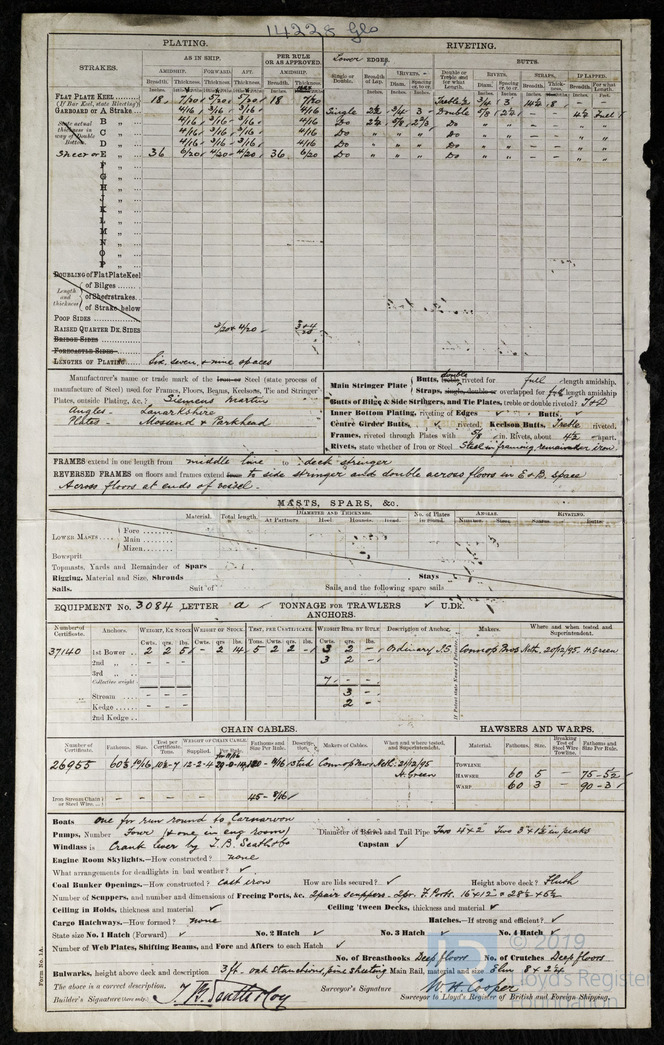 14228 Glo
PLATING. RIVETING.
STRAKES. AS IN SHIP. PER RULE OR AS APPROVED. Lower EDGES. BUTTS.
AMIDSHIP. FORWARD. AFT. AMIDSHIP. Single or Double. Breadth of Lap. RIVETS. Double or Treble and for what Length. RIVETS. STRAPS. IF LAPPED.
Breadth. Thickness. Thickness. Thickness. Breadth. Thickness. Diam. Spacing cr. to cr. Diam. Spacing cr. to cr. Breadth. Thickness. Breadth. For what Length.
FLAT PLATE KEEL 18 7/20 5/20 5/20 18 7/20 Treble 3/4 3
(If Bar Keel, state Riveting)
GARBOARD OR A Strake 4/16 3/16 3/16 4/16 Single 3/4 3 Double
B " 4/16 3/16 3/16 4/16 Do Do
State actual thickness in way of Double Bottom.
C " 4/16 3/16 3/16 4/16 Do " " " Do
D " 4/16 3/16 3/16 4/16 Do " " " Do
Sheer or E " 36 6/20 4/20 4/20 36 6/20 Do " " " Do
F "
G "
H "
J "
K "
L "
M "
N "
O "
P "
DOUBLING of Flat Plate Keel
Length and thickness
of Bilges
of Sheerstrakes
of Strake below
POOP SIDES
RAISED QUARTER DK. SIDES 3/20 & 4/20 3 & 4/20
BRIDGE SIDES
FORECASTLE SIDES
LENGTHS OF PLATING Six, seven, & nine spaces
Manufacturer's name or trade mark of the Iron or Steel (state process of
manufacture of Steel) used for Frames, Floors, Beams, Keelsons, Tie and Stringer
Plates, outside Plating, &c. Siemens Martin
Angles - Lanarkshire
Plates - Mossend & Parkhead
Main Stringer Plate Butts, double riveted for full length amidship.
Straps, single, double or overlapped for full length amidship
Butts of Bilge & Side Stringers, and Tie Plates, (treble or double riveted) T & D
Inner Bottom Plating, riveting of Edges ✓ Butts, ✓
Centre Girder Butts, ✓ riveted. Keelson Butts, Treble riveted.
Frames, riveted through Plates with 5/8 in. Rivets, about 4½ apart.
Rivets, state whether of Iron or Steel Steel in framing, remainder iron.
FRAMES extend in one length from middle line to deck stringer
REVERSED FRAMES on floors and frames extend to side stringer and double across floors in E & B. space
Across floors at ends of vessel.
MASTS, SPARS, &c.
Material. Total length. DIAMETER AND THICKNESS. No. of Plates in round. ANGLES. RIVETING.
At Partners. Heel. Hounds. Head. Number. Sizes. Seams. Butts.
LOWER MASTS Fore
Main
Mizen
Bowsprit
Topmasts, Yards and Remainder of Spars
Rigging, Material and Size, Shrouds Stays
Sails. Suit of Sails, and the following spare sails
EQUIPMENT No. 3084 LETTER a ✓ TONNAGE FOR TRAWLERS ✓ U.Dk.
ANCHORS.
Number of Certificate. Anchors. WEIGHT, EX STOCK WEIGHT OF STOCK. TEST, PER CERTIFICATE WEIGHT REQ. BY RULE Description of Anchor. Makers. Where and when tested and Superintendent.
Cwts. qrs. lbs. Cwts. qrs. lbs. Tons. Cwts. qrs. lbs. Cwts. qrs. lbs.
37140 1st Bower 2 2 5 - 2 14 5 2 2 - 3 2 - Ordinary Connop Bros Neth. 20/12/95. H. Green
2nd " - - - 3 2 -
3rd "
Collective weight 7 - -
Stream 3 -
Kedge 2 -
2nd Kedge
CHAIN CABLES. HAWSERS AND WARPS.
Number of Certificate. Fathoms. Size. Test per Certificate Tons. WEIGHT OF CHAIN CABLE. Supplied. Per Rule. Fathoms and Size Per Rule. Description. Makers of Cables. When and where tested, and Superintendent. Material. Fathoms. Size. Breaking Test of Steel Wire Towline. Fathoms and Size Per Rule.
26955 60½ 10/16 12-2-4 120 - 9/16 Stud Connop Bros Neth: 21/12/95
H. Green
TOWLINE
HAWSER 60 5 - 75-5½ ✓
WARP 60 3 - 90-3 ✓
Iron Stream Chain or Steel Wire - - - 45 - 8/16 ✓
Boats one for run round to Carnarvon
Pumps, Number Four (& one in eng room) Diameter of Barrel and Tail Pipe Two 4" & 2" Two 3" & 1½" in peaks
Windlass is Crank lever by T. B. Seath & Co Capstan ✓
Engine Room Skylights.—How constructed? none
What arrangements for deadlights in bad weather? ✓
Coal Bunker Openings.—How constructed? Cast iron How are lids secured? ✓ Height above deck? Flush
Number of Scuppers, and number and dimensions of Freeing Ports, &c. 2 pair scuppers - 2 pr. F. Ports.
Ceiling in Holds, thickness and material ✓ Ceiling 'tween Decks, thickness and material. ✓
Cargo Hatchways.—How formed? none Hatches.—If strong and efficient? ✓
State size No. 1 Hatch (Forward) ✓ No. 2 Hatch ✓ No. 3 Hatch ✓ No. 4 Hatch ✓
Number of Web Plates, Shifting Beams, and Fore and Afters to each Hatch ✓
No. of Breasthooks Deep floors No. of Crutches Deep floors
Bulwarks, height above deck and description 3 ft. oak stanchions, pine sheeting Main Rail, material and size Elm 8 x 2¼
The above is a correct description.
Builder's Signature (here only) T. B. Seath & Coy Surveyor's Signature W. H. Cooper
Surveyor to Lloyd's Register of British and Foreign Shipping.
Form No. 1A.
© 2019
Lloyd's Register
Foundation